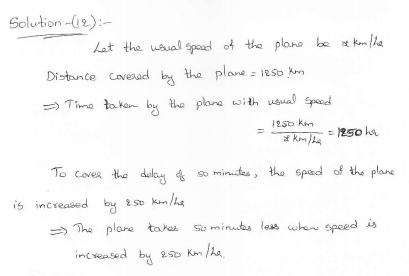 Solution-(12):-
Let the usual speed of the plane be x km/hr
Distance covered by the plane = 1250 km
⇒ Time taken by the plane with usual speed
= 1250 km / x km/hr = 1250 hr
To cover the delay of 50 minutes, the speed of the plane
is increased by 250 km/hr
⇒ The plane takes 50 minutes less when speed is
increased by 250 km/hr.